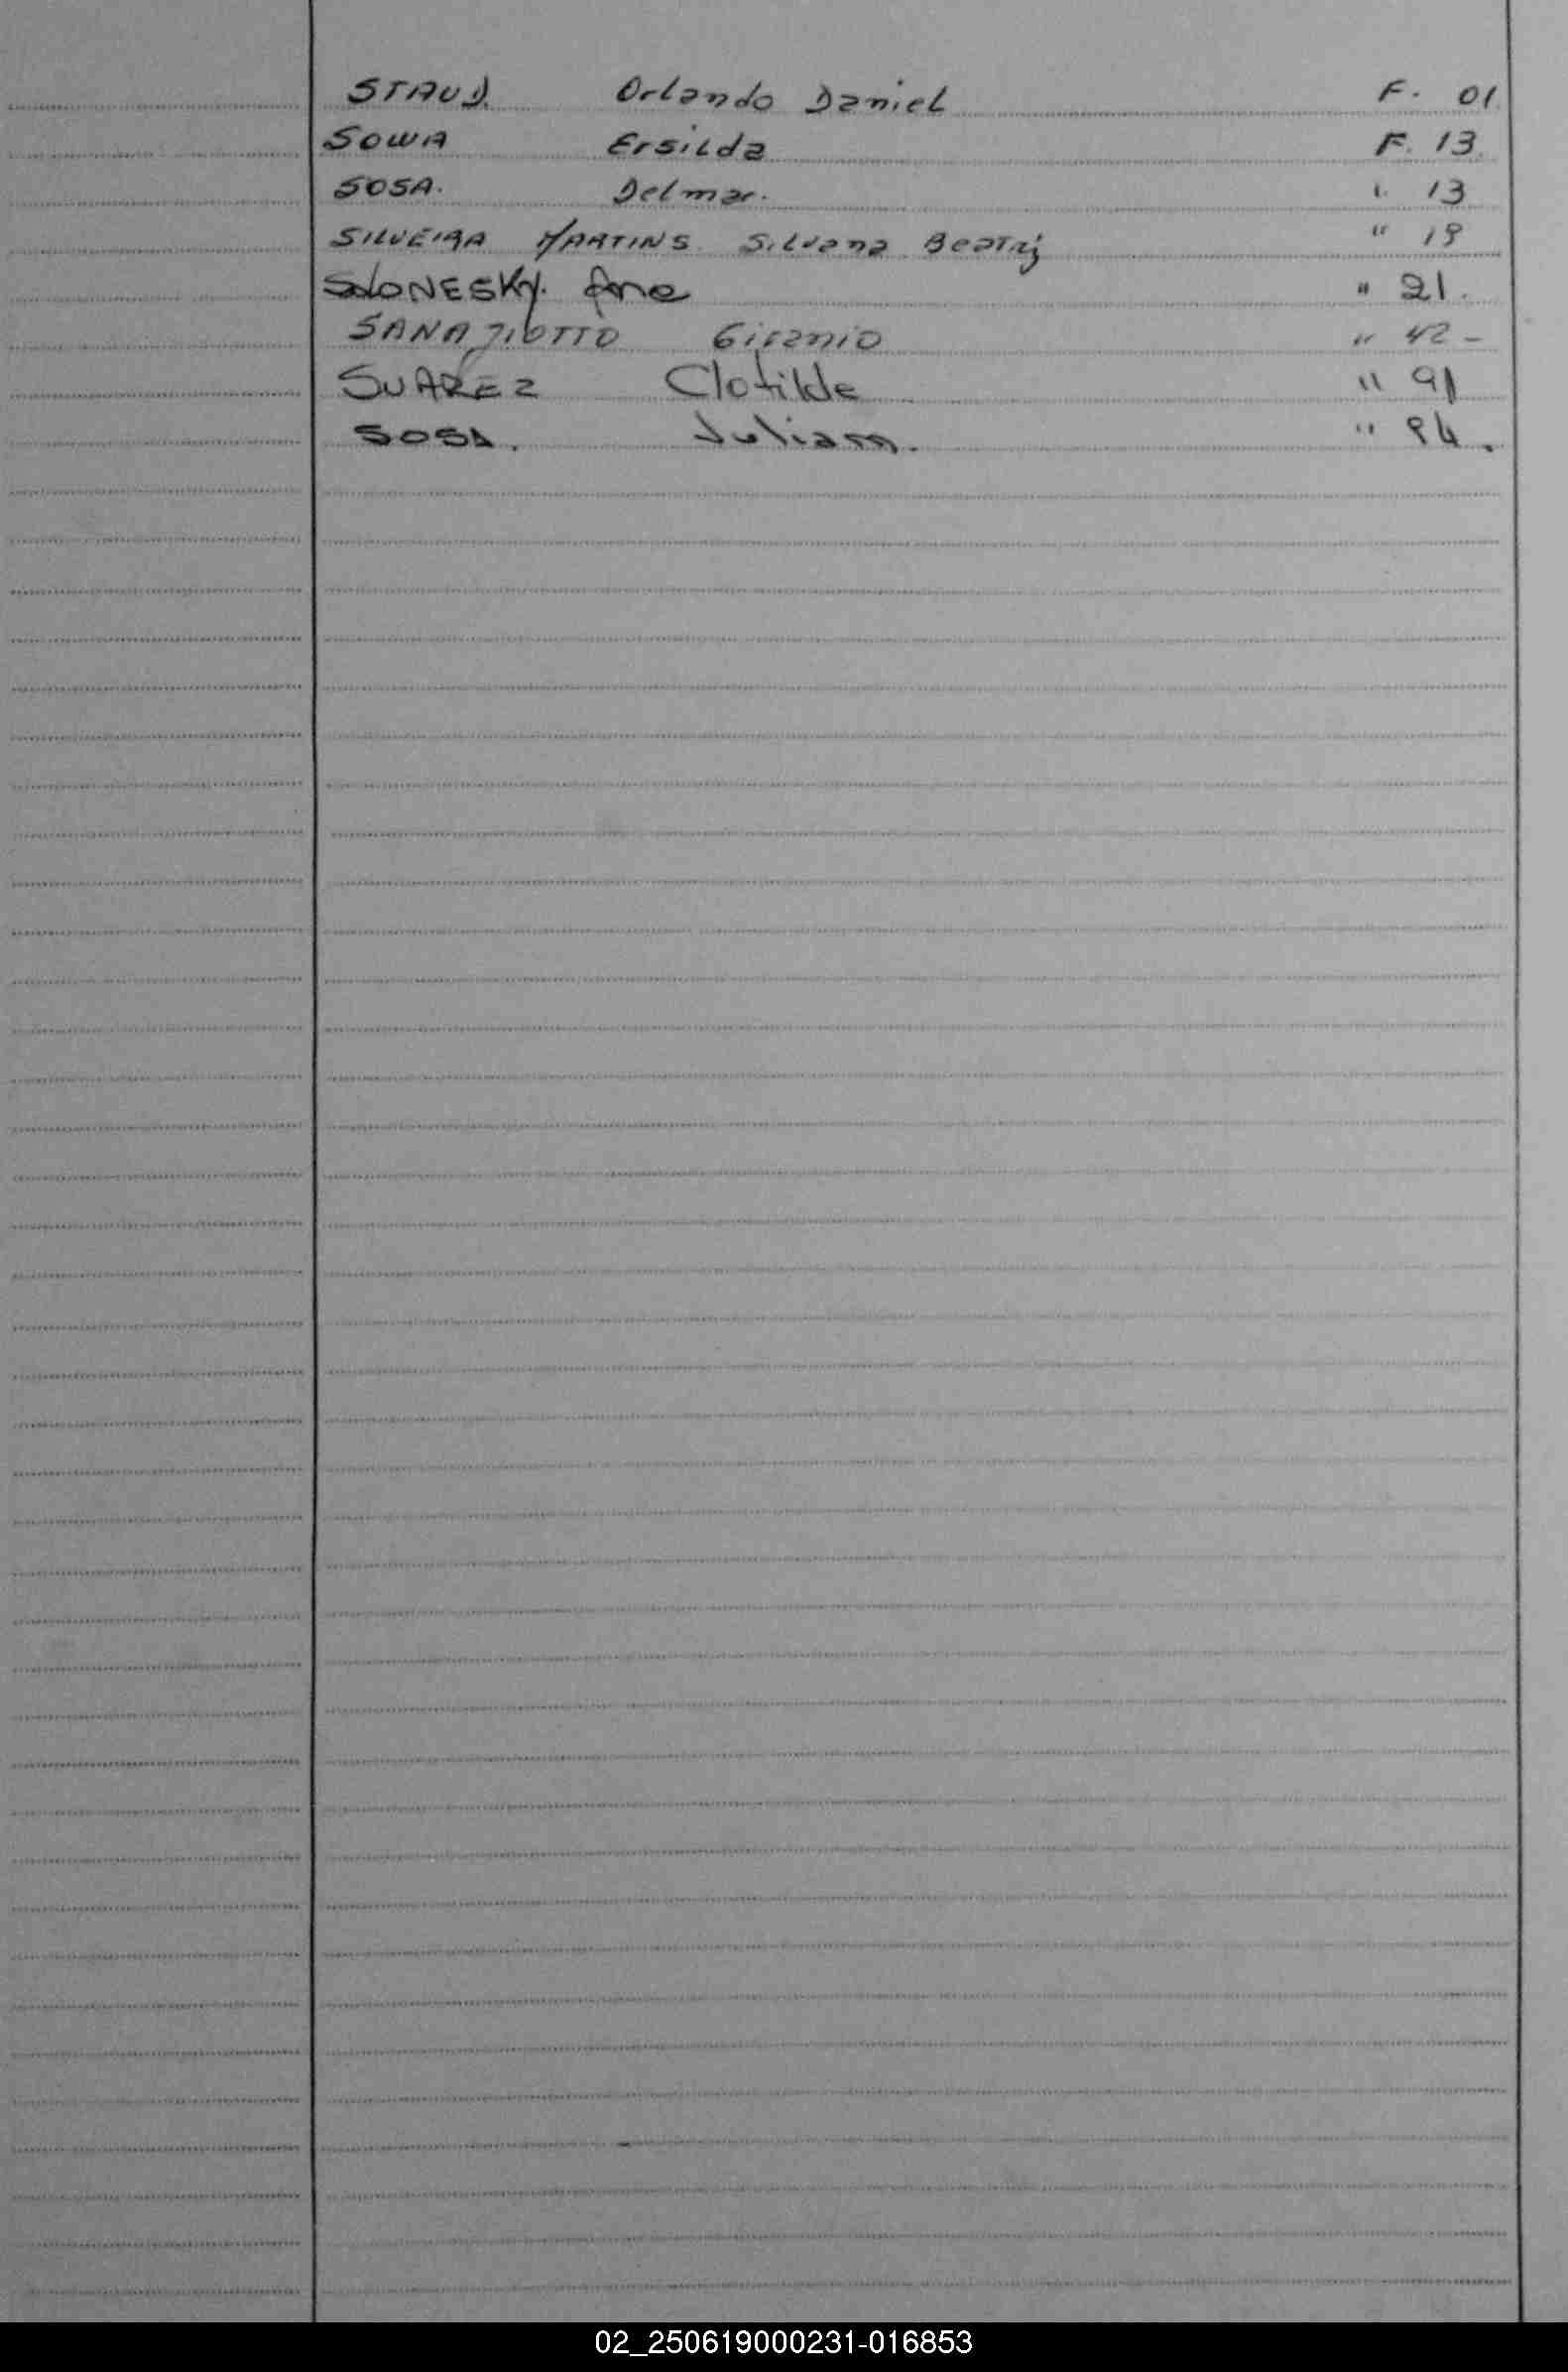 STAUD Orlando Daniel F. 01
SOWA Ersilda F. 13
SOSA. Delmar. " 13
SILVEIRA MARTINS Silvana Beatriz " 19
SLONESKY. Ana " 21.
SANAZIOTTO " 42 -
SUAREZ Clotilde " 91
SOSA. Juliam. " 94.
02_250619000231-016853